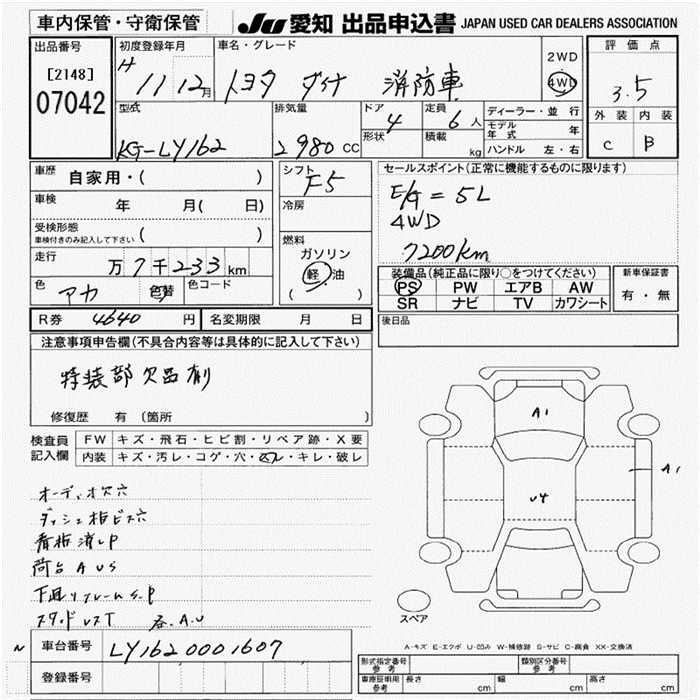 車内保管・守衛保管
JU 愛知 出品申込書 JAPAN USED CAR DEALERS ASSOCIATION
出品番号
[2148]
07042
初度登録年月
H 11 12月
車名・グレード
トヨタ ダイナ 消防車
2WD
4WD
評価点
3.5
外装 内装
C B
型式
KG-LY162
排気量
2980 CC
ドア
4
形状
定員
6人
積載
kg
ディーラー・並行
モデル年式 年
ハンドル 左・右
車歴
自家用・( )
車検 年 月( 日)
受検形態
車検付きのみ記入して下さい ( )
走行
万 7千 233 km
色
アカ
色替
色コード
シフト
F5
冷房
燃料
ガソリン
軽・油
( )
セールスポイント(正常に機能するものに限ります)
E/G = 5L
4WD
7200km
装備品(純正品に限り○をつけてください)
PS PW エアB AW
SR ナビ TV カワシート
新車保証書
有・無
R券 4640 円
名変期限 月 日
後日品
注意事項申告欄(不具合内容等は具体的に記入して下さい)
特装部欠品有り
修復歴 有 〔箇所 〕
検査員記入欄
FW キズ・飛石・ヒビ割・リペア跡・X要
内装 キズ・汚レ・コゲ・穴・スレ・キレ・破レ
オーディオ欠穴
ダッシュ板ビス穴
看板消しP
荷台 AUS
下廻り フレームS.P
A1
U4
A1
スペア
N
車台番号 LY1620001607
登録番号
A-キズ E-エクボ U-凹み W-補修跡 S-サビ C-腐食 XX-交換済
型式指定番号 参考
類別区分番号 参考
車庫証明用 参考
長さ cm 幅 cm 高さ cm